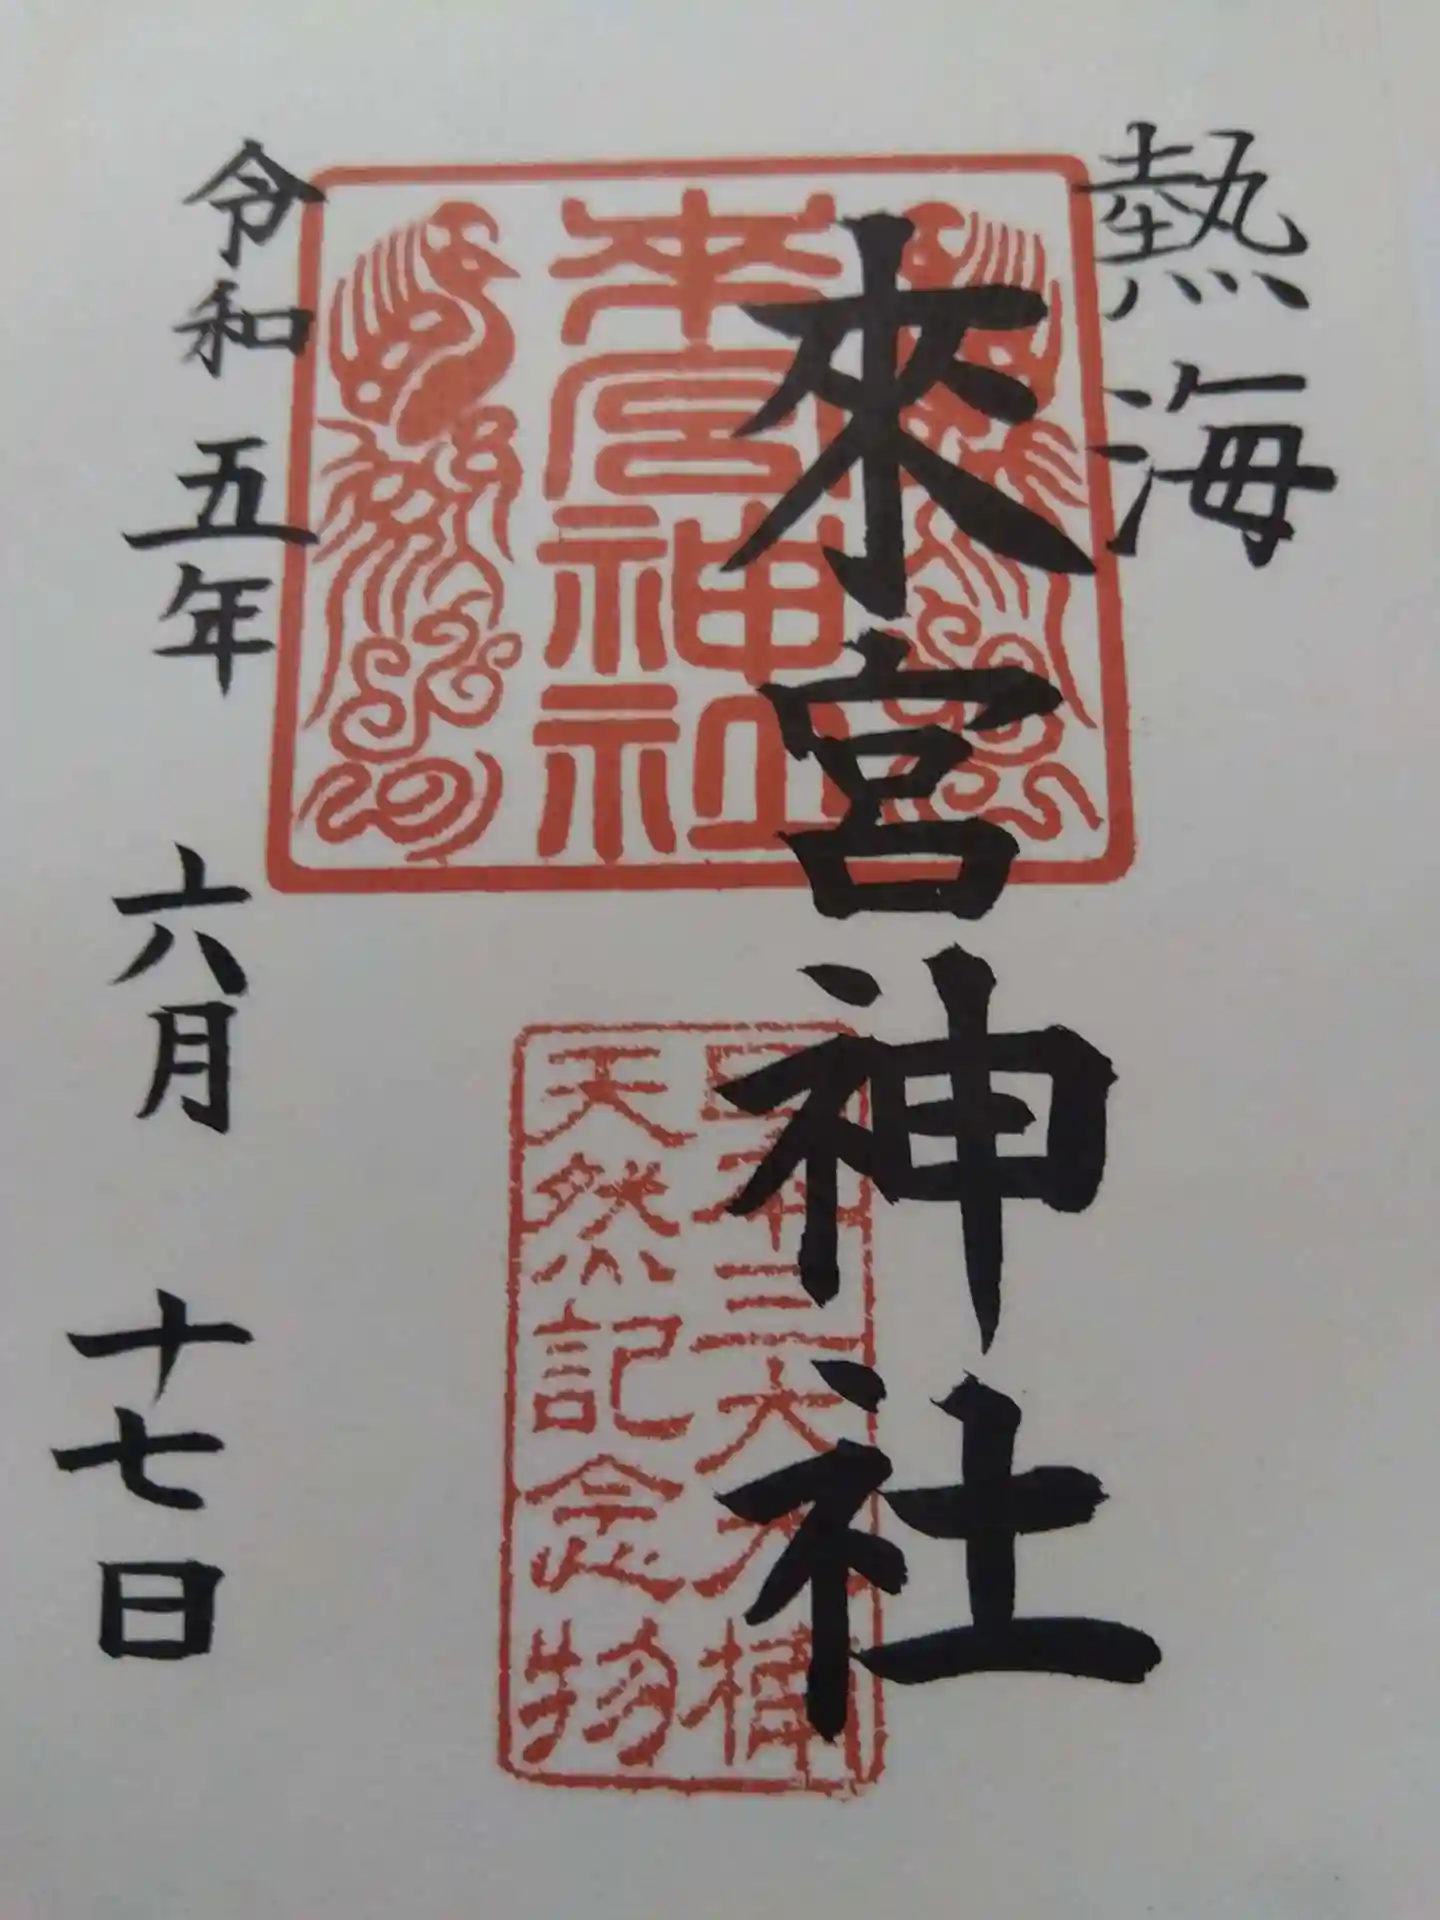 熱海
來宮神社
来宮神社
日本三大大楠
天然記念物
令和五年六月十七日